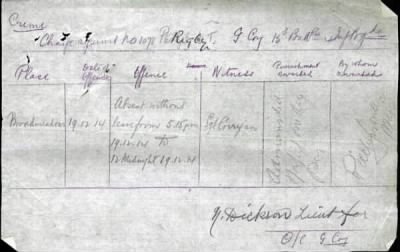 Crime
Charge against No 1078 Pte Rigby T. G Coy 13th
Place
Date of Offence
Offence
Witness
Punishment awarded
By whom awarded
Broadmeadows
19.12.14
Absent without
leave from 5.15 pm
19.12.14 to
12 Midnight 19.12.14
Sgt Corrigan
Admonished
N. Dickson Lieut for
O/C G Coy